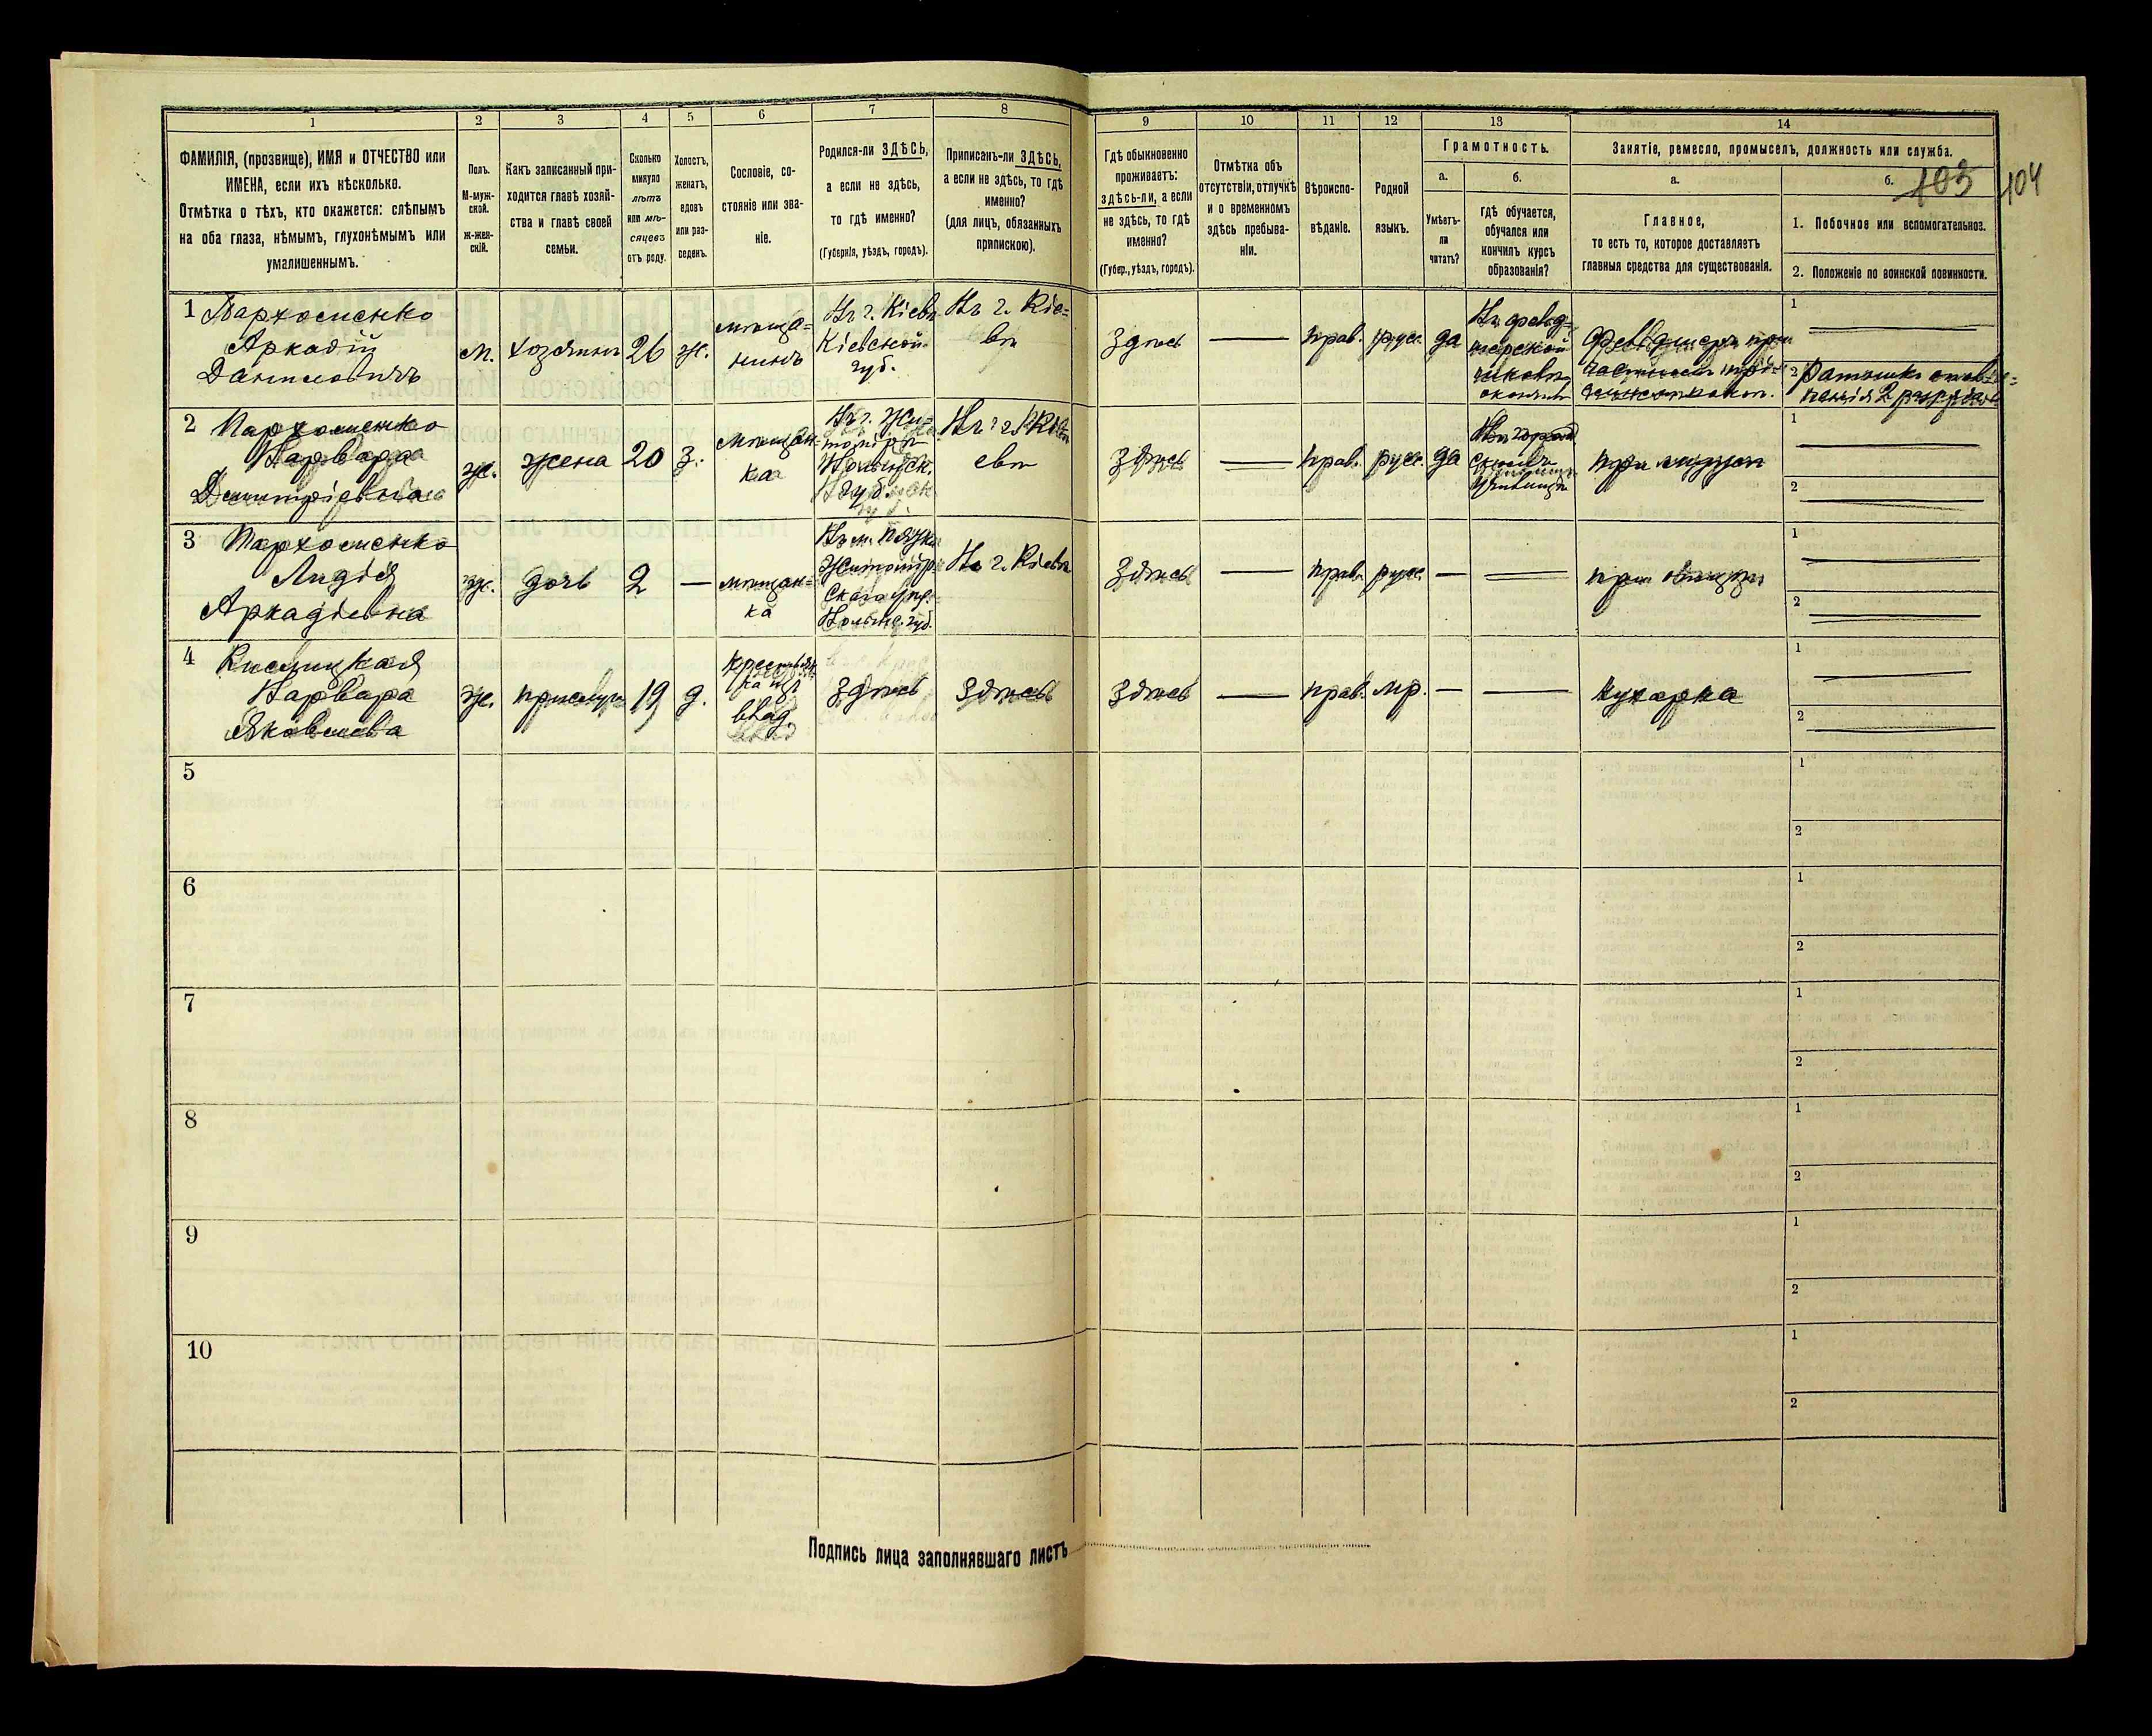 1
2
3
4
5
6
7
8
9
10
11
12
13
14
ФАМИЛІЯ, (прозвище), ИМЯ и ОТЧЕСТВО или
ИМЕНА, если ихъ нѣсколько.
Отмѣтка о тѣхъ, кто окажется: слѣпымъ
на оба глаза, нѣмымъ, глухонѣмымъ или
умалишеннымъ.
Полъ.
М-муж-
ской.
ж-жен-
скій.
Какъ записанный при-
ходится главѣ хозяй-
ства и главѣ своей
семьи.
Сколько
минуло
лѣтъ
или мѣ-
сяцевъ
отъ роду.
Холостъ,
женатъ,
вдовъ
или раз-
веденъ.
Сословіе, со-
стояніе или зва-
ніе.
Родился-ли ЗДѢСЬ,
а если не здѣсь,
то гдѣ именно?
(Губернія, уѣздъ, городъ).
Приписанъ-ли ЗДѢСЬ,
а если не здѣсь, то гдѣ
именно?
(для лицъ, обязанныхъ
припискою).
Гдѣ обыкновенно
проживаетъ:
здѣсь-ли, а если
не здѣсь, то гдѣ
именно?
(Губер., уѣздъ, городъ).
Отмѣтка объ
отсутствіи, отлучкѣ
и о временномъ
здѣсь пребыва-
ніи.
Вѣроиспо-
вѣданіе.
Родной
языкъ.
Грамотность.
а.
Умѣетъ-
ли
читать?
б.
гдѣ обучается,
обучался или
кончилъ курсъ
образованія?
Занятіе, ремесло, промыселъ, должность или служба.
а.
Главное,
то есть то, которое доставляетъ
главныя средства для существованія.
б.
403
404
1. Побочное или вспомогательное.
2. Положеніе по воинской повинности.
1 Пархоменко
Аркадій
Даниловичъ
м.
хозяинъ
26
ж.
мѣща-
нинъ
Въ г. Кіевѣ
Кіевской
губ.
Въ г. Кіе-
вѣ
здѣсь
прав.
русск.
да
Въ фельд-
шерской
1
2 Ратникъ ополче-
нія 2 разряда
2 Пархоменко
Варвара
Димитріевна
ж.
жена
20
з.
мѣщан-
ка
Въ г. Жи-
томірѣ
Волынск.
губ.
евѣ
здѣсь
прав.
русс.
да
при мужѣ
1
2
3 Пархоменко
Лидія
Аркадіевна
ж.
дочь
2
мѣщан-
ка
Житомір-
Волынс. губ.
Въ г. Кіевѣ
здѣсь
прав.
русс.
1
2
4
Варвара
Яковлева
ж.
прислуга
19
д.
влад.
здѣсь
здѣсь
здѣсь
прав.
мр.
кухарка
1
2
5
1
2
6
1
2
7
1
2
8
1
2
9
1
2
10
1
2
Подпись лица заполнявшаго листъ